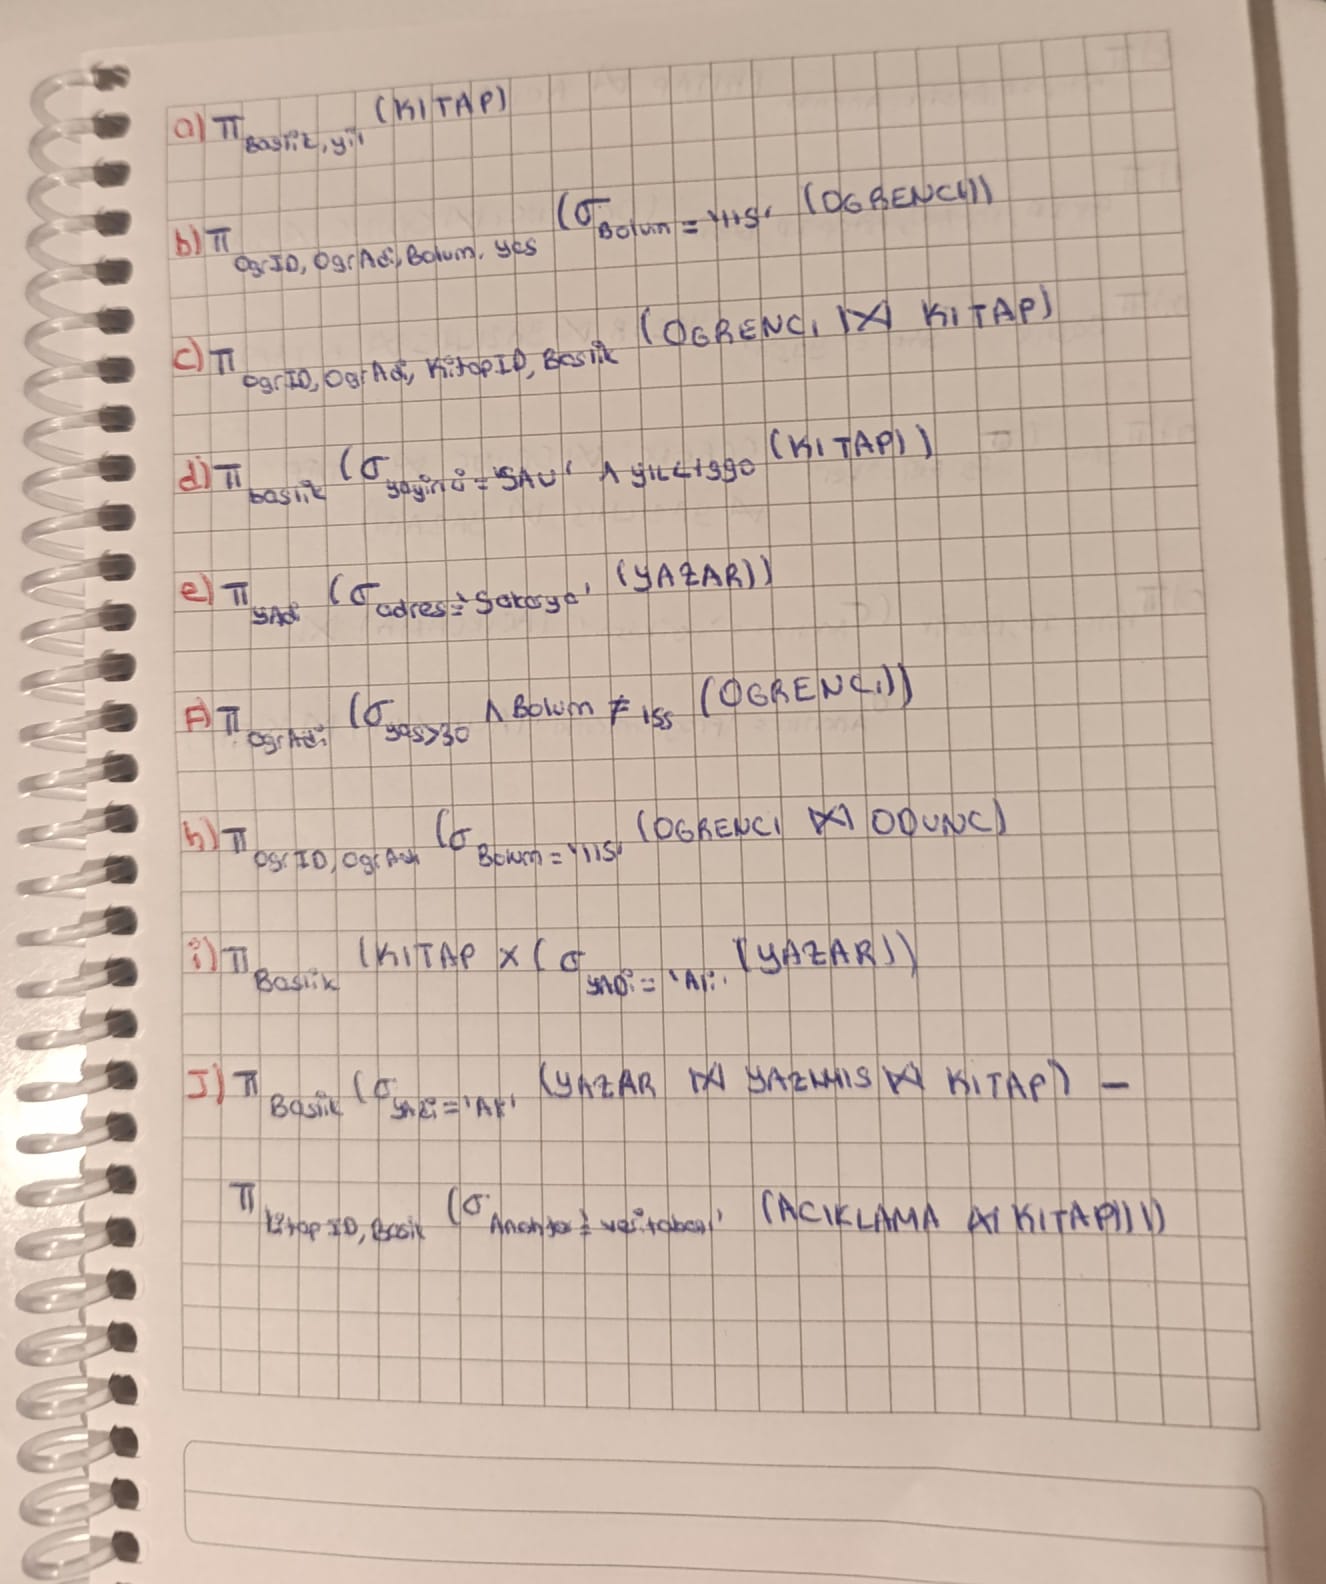 a) π Baslik, yil (KITAP)
b) π OgrID, OgrAdi, Bolum, yas (σ Bolum = 'YIIS' (OGRENCI))
c) π OgrID, OgrAdi, KitapID, Baslik (OGRENCI ⋈ KITAP)
d) π baslik (σ yayinci = 'SAU' ∧ yıl<1990 (KITAP))
e) π yAdi (σ adres='Sakarya' (YAZAR))
F) π OgrAdi (σ yas>30 ∧ Bolum ≠ ISS (OGRENCI))
h) π OgrID, OgrAdi (σ Bolum = 'YIIS' (OGRENCI ⋈ ODUNC)
i) π Baslik (KITAP × (σ yADi = 'Ali' (YAZAR))
J) π Baslik (σ yAdi = 'Ali' (YAZAR ⋈ YAZMIS ⋈ KITAP) −
π KitapID, Baslik (σ Anahtar = 'veritabani' (ACIKLAMA ⋈ KITAP))))